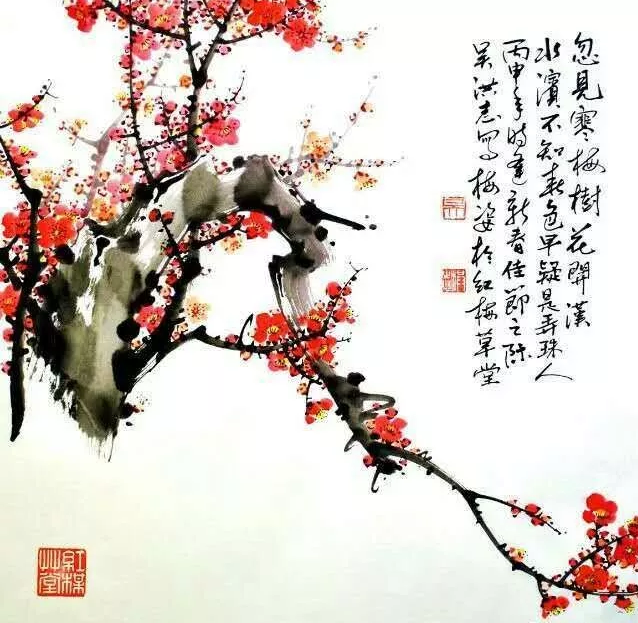 忽見寒梅樹花開漢
水濱不知春色早疑是弄珠人
丙申年時逢新春佳節之際
吴洪志寫梅姿於紅梅草堂
紅梅草堂